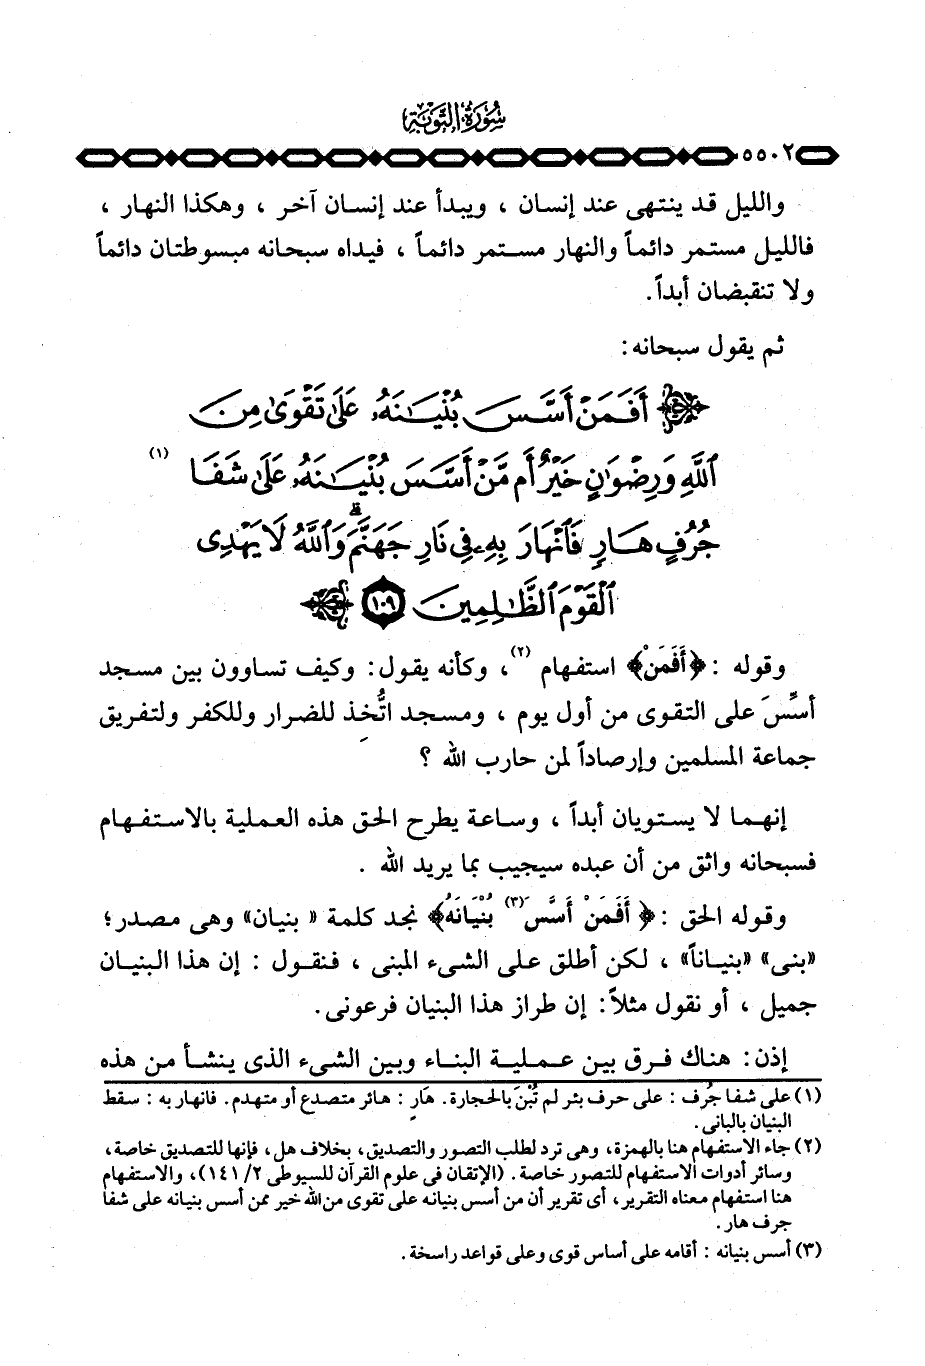 سُورَةُ التَّوْبَةِ
٥٥٠٢
والليل قد ينتهى عند إنسان ، ويبدأ عند إنسان آخر ، وهكذا النهار ،
فالليل مستمر دائماً والنهار مستمر دائماً ، فيداه سبحانه مبسوطتان دائماً
ولا تنقبضان أبداً.
ثم يقول سبحانه:
أَفَمَنْ أَسَّسَ بُنْيَٰنَهُۥ عَلَىٰ تَقْوَىٰ مِنَ
ٱللَّهِ وَرِضْوَٰنٍ خَيْرٌ أَم مَّنْ أَسَّسَ بُنْيَٰنَهُۥ عَلَىٰ شَفَا (١)
جُرُفٍ هَارٍ فَٱنْهَارَ بِهِۦ فِى نَارِ جَهَنَّمَ ۗ وَٱللَّهُ لَا يَهْدِى
ٱلْقَوْمَ ٱلظَّٰلِمِينَ ١٠٩
وقوله : ﴿أَفَمَنْ﴾ استفهام (٢)، وكأنه يقول: وكيف تساوون بين مسجد
أسِّسَ على التقوى من أول يوم ، ومسجد اتُّخِذ للضرار وللكفر ولتفريق
جماعة المسلمين وإرصاداً لمن حارب الله ؟
إنهما لا يستويان أبداً ، وساعة يطرح الحق هذه العملية بالاستفهام
فسبحانه واثق من أن عبده سيجيب بما يريد الله .
وقوله الحق : ﴿ أَفَمَنْ أَسَّسَ (٣) بُنْيَانَهُ﴾ نجد كلمة « بنيان» وهى مصدر؛
«بنى» «بنياناً» ، لكن أطلق على الشىء المبنى ، فنقول : إن هذا البنيان
جميل ، أو نقول مثلاً: إن طراز هذا البنيان فرعونى.
إذن: هناك فرق بين عملية البناء وبين الشىء الذى ينشأ من هذه
(١) على شفا جُرُف : على حرف بئر لم تُبْنَ بالحجارة. هَارٍ : هائر متصدع أو متهدم. فانهار به : سقط
البنيان بالبانى.
(٢) جاء الاستفهام هنا بالهمزة، وهى ترد لطلب التصور والتصديق، بخلاف هل، فإنها للتصديق خاصة،
وسائر أدوات الاستفهام للتصور خاصة. (الإتقان فى علوم القرآن للسيوطى ٢/ ١٤١)، والاستفهام
هنا استفهام معناه التقرير، أى تقرير أن من أسس بنيانه على تقوى من الله خير ممن أسس بنيانه على شفا
جرف هار.
(٣) أسس بنيانه : أقامه على أساس قوى وعلى قواعد راسخة.